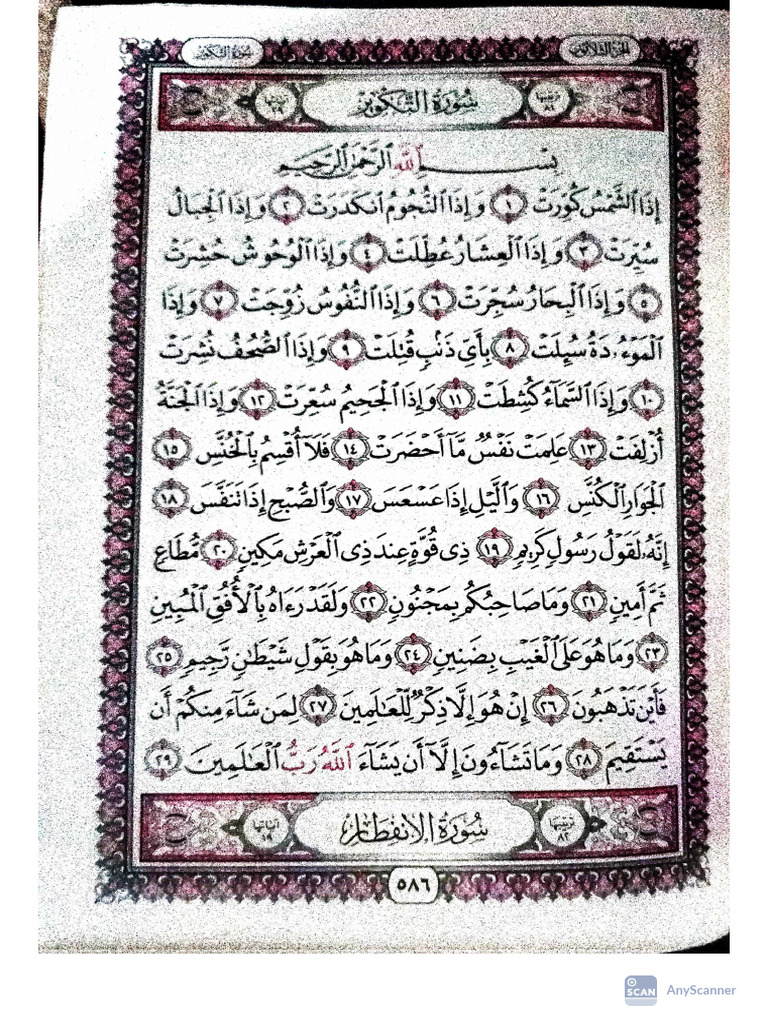 الجزء الثلاثون
سورة التكوير
ترتيبها ٨١
سُورَةُ التَّكْوِيرِ
آياتها ٢٩
بِسْمِ ٱللَّهِ ٱلرَّحْمَٰنِ ٱلرَّحِيمِ
إِذَا ٱلشَّمْسُ كُوِّرَتْ ١ وَإِذَا ٱلنُّجُومُ ٱنكَدَرَتْ ٢ وَإِذَا ٱلْجِبَالُ
سُيِّرَتْ ٣ وَإِذَا ٱلْعِشَارُ عُطِّلَتْ ٤ وَإِذَا ٱلْوُحُوشُ حُشِرَتْ
٥ وَإِذَا ٱلْبِحَارُ سُجِّرَتْ ٦ وَإِذَا ٱلنُّفُوسُ زُوِّجَتْ ٧ وَإِذَا
ٱلْمَوْءُۥدَةُ سُئِلَتْ ٨ بِأَىِّ ذَنۢبٍ قُتِلَتْ ٩ وَإِذَا ٱلصُّحُفُ نُشِرَتْ
١٠ وَإِذَا ٱلسَّمَآءُ كُشِطَتْ ١١ وَإِذَا ٱلْجَحِيمُ سُعِّرَتْ ١٢ وَإِذَا ٱلْجَنَّةُ
أُزْلِفَتْ ١٣ عَلِمَتْ نَفْسٌ مَّآ أَحْضَرَتْ ١٤ فَلَآ أُقْسِمُ بِٱلْخُنَّسِ ١٥
ٱلْجَوَارِ ٱلْكُنَّسِ ١٦ وَٱلَّيْلِ إِذَا عَسْعَسَ ١٧ وَٱلصُّبْحِ إِذَا تَنَفَّسَ ١٨
إِنَّهُۥ لَقَوْلُ رَسُولٍ كَرِيمٍ ١٩ ذِى قُوَّةٍ عِندَ ذِى ٱلْعَرْشِ مَكِينٍ ٢٠ مُّطَاعٍ
ثَمَّ أَمِينٍ ٢١ وَمَا صَاحِبُكُم بِمَجْنُونٍ ٢٢ وَلَقَدْ رَءَاهُ بِٱلْأُفُقِ ٱلْمُبِينِ
٢٣ وَمَا هُوَ عَلَى ٱلْغَيْبِ بِضَنِينٍ ٢٤ وَمَا هُوَ بِقَوْلِ شَيْطَٰنٍ رَّجِيمٍ ٢٥
فَأَيْنَ تَذْهَبُونَ ٢٦ إِنْ هُوَ إِلَّا ذِكْرٌ لِّلْعَٰلَمِينَ ٢٧ لِمَن شَآءَ مِنكُمْ أَن
يَسْتَقِيمَ ٢٨ وَمَا تَشَآءُونَ إِلَّآ أَن يَشَآءَ ٱللَّهُ رَبُّ ٱلْعَٰلَمِينَ ٢٩
ترتيبها ٨٢
سُورَةُ الِانفِطَارِ
آياتها ١٩
٥٨٦
SCAN AnyScanner